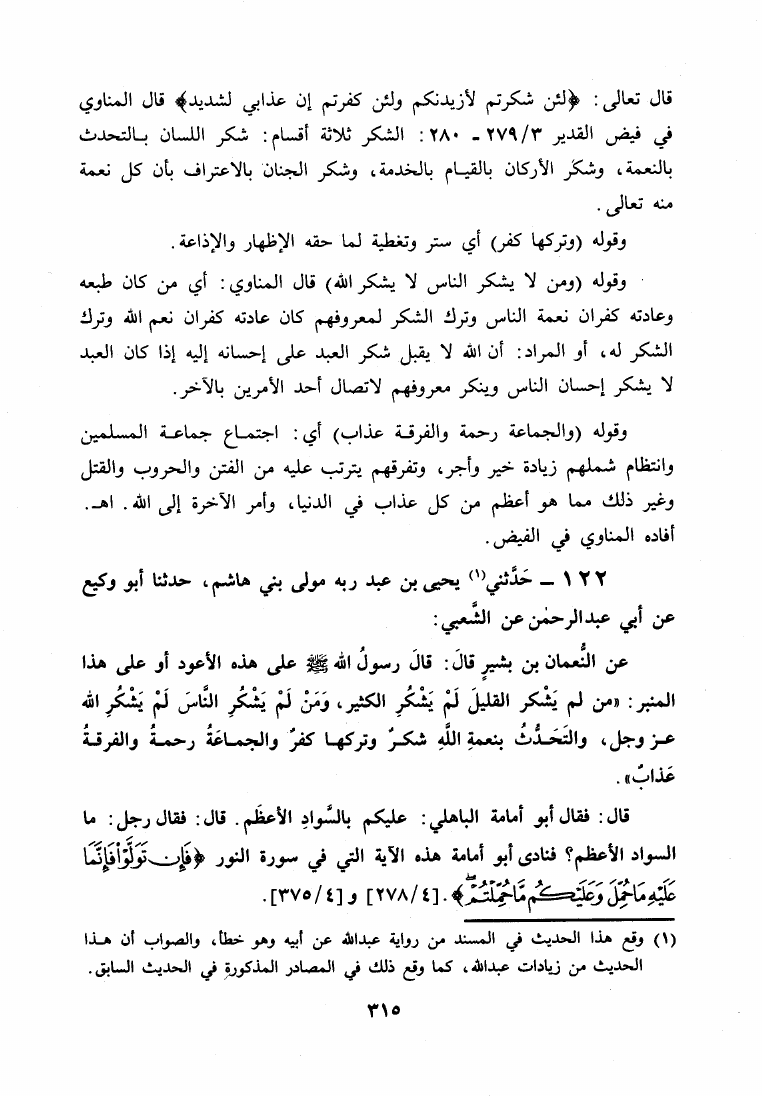 قال تعالى: ﴿لئن شكرتم لأزيدنكم ولئن كفرتم إن عذابي لشديد﴾ قال المناوي
في فيض القدير ٢٧٩/٣ ـ ٢٨٠: الشكر ثلاثة أقسام: شكر اللسان بالتحدث
بالنعمة، وشكر الأركان بالقيام بالخدمة، وشكر الجنان بالاعتراف بأن كل نعمة
منه تعالى.
وقوله (وتركها كفر) أي ستر وتغطية لما حقه الإظهار والإذاعة.
وقوله (ومن لا يشكر الناس لا يشكر الله) قال المناوي: أي من كان طبعه
وعادته كفران نعمة الناس وترك الشكر لمعروفهم كان عادته كفران نعم الله وترك
الشكر له، أو المراد: أن الله لا يقبل شكر العبد على إحسانه إليه إذا كان العبد
لا يشكر إحسان الناس وينكر معروفهم لاتصال أحد الأمرين بالآخر.
وقوله (والجماعة رحمة والفرقة عذاب) أي: اجتماع جماعة المسلمين
وانتظام شملهم زيادة خير وأجر، وتفرقهم يترتب عليه من الفتن والحروب والقتل
وغير ذلك مما هو أعظم من كل عذاب في الدنيا، وأمر الآخرة إلى الله. اهـ.
أفاده المناوي في الفيض.
١٢٢ ـ حَدَّثني(١) يحيى بن عبد ربه مولى بني هاشم، حدثنا أبو وكيع
عن أبي عبدالرحمٰن عن الشَّعبي:
عن النُّعمان بن بشيرٍ قالَ: قالَ رسولُ الله ﷺ على هذه الأعود أو على هذا
المنبر: «من لم يَشْكر القليلَ لَمْ يَشْكُرِ الكثير، وَمَنْ لَمْ يَشْكُرِ النَّاسَ لَمْ يَشْكُرِ الله
عز وجل، والتَحَدُّثُ بنعمةِ اللَّهِ شكرٌ وتركها كفرٌ والجماعَةُ رحمةٌ والفرقةُ
عَذابٌ».
قال: فقال أبو أمامة الباهلي: عليكم بالسَّوادِ الأعظَم. قال: فقال رجل: ما
السواد الأعظم؟ فنادى أبو أمامة هذه الآية التي في سورة النور ﴿فَإِن تَوَلَّوْا فَإِنَّمَا
عَلَيْهِ مَا حُمِّلَ وَعَلَيْكُم مَّا حُمِّلْتُمْ ۖ﴾. [٢٧٨/٤] و [٣٧٥/٤].
(١) وقع هذا الحديث في المسند من رواية عبدالله عن أبيه وهو خطأ، والصواب أن هذا
الحديث من زيادات عبدالله، كما وقع ذلك في المصادر المذكورة في الحديث السابق.
٣١٥